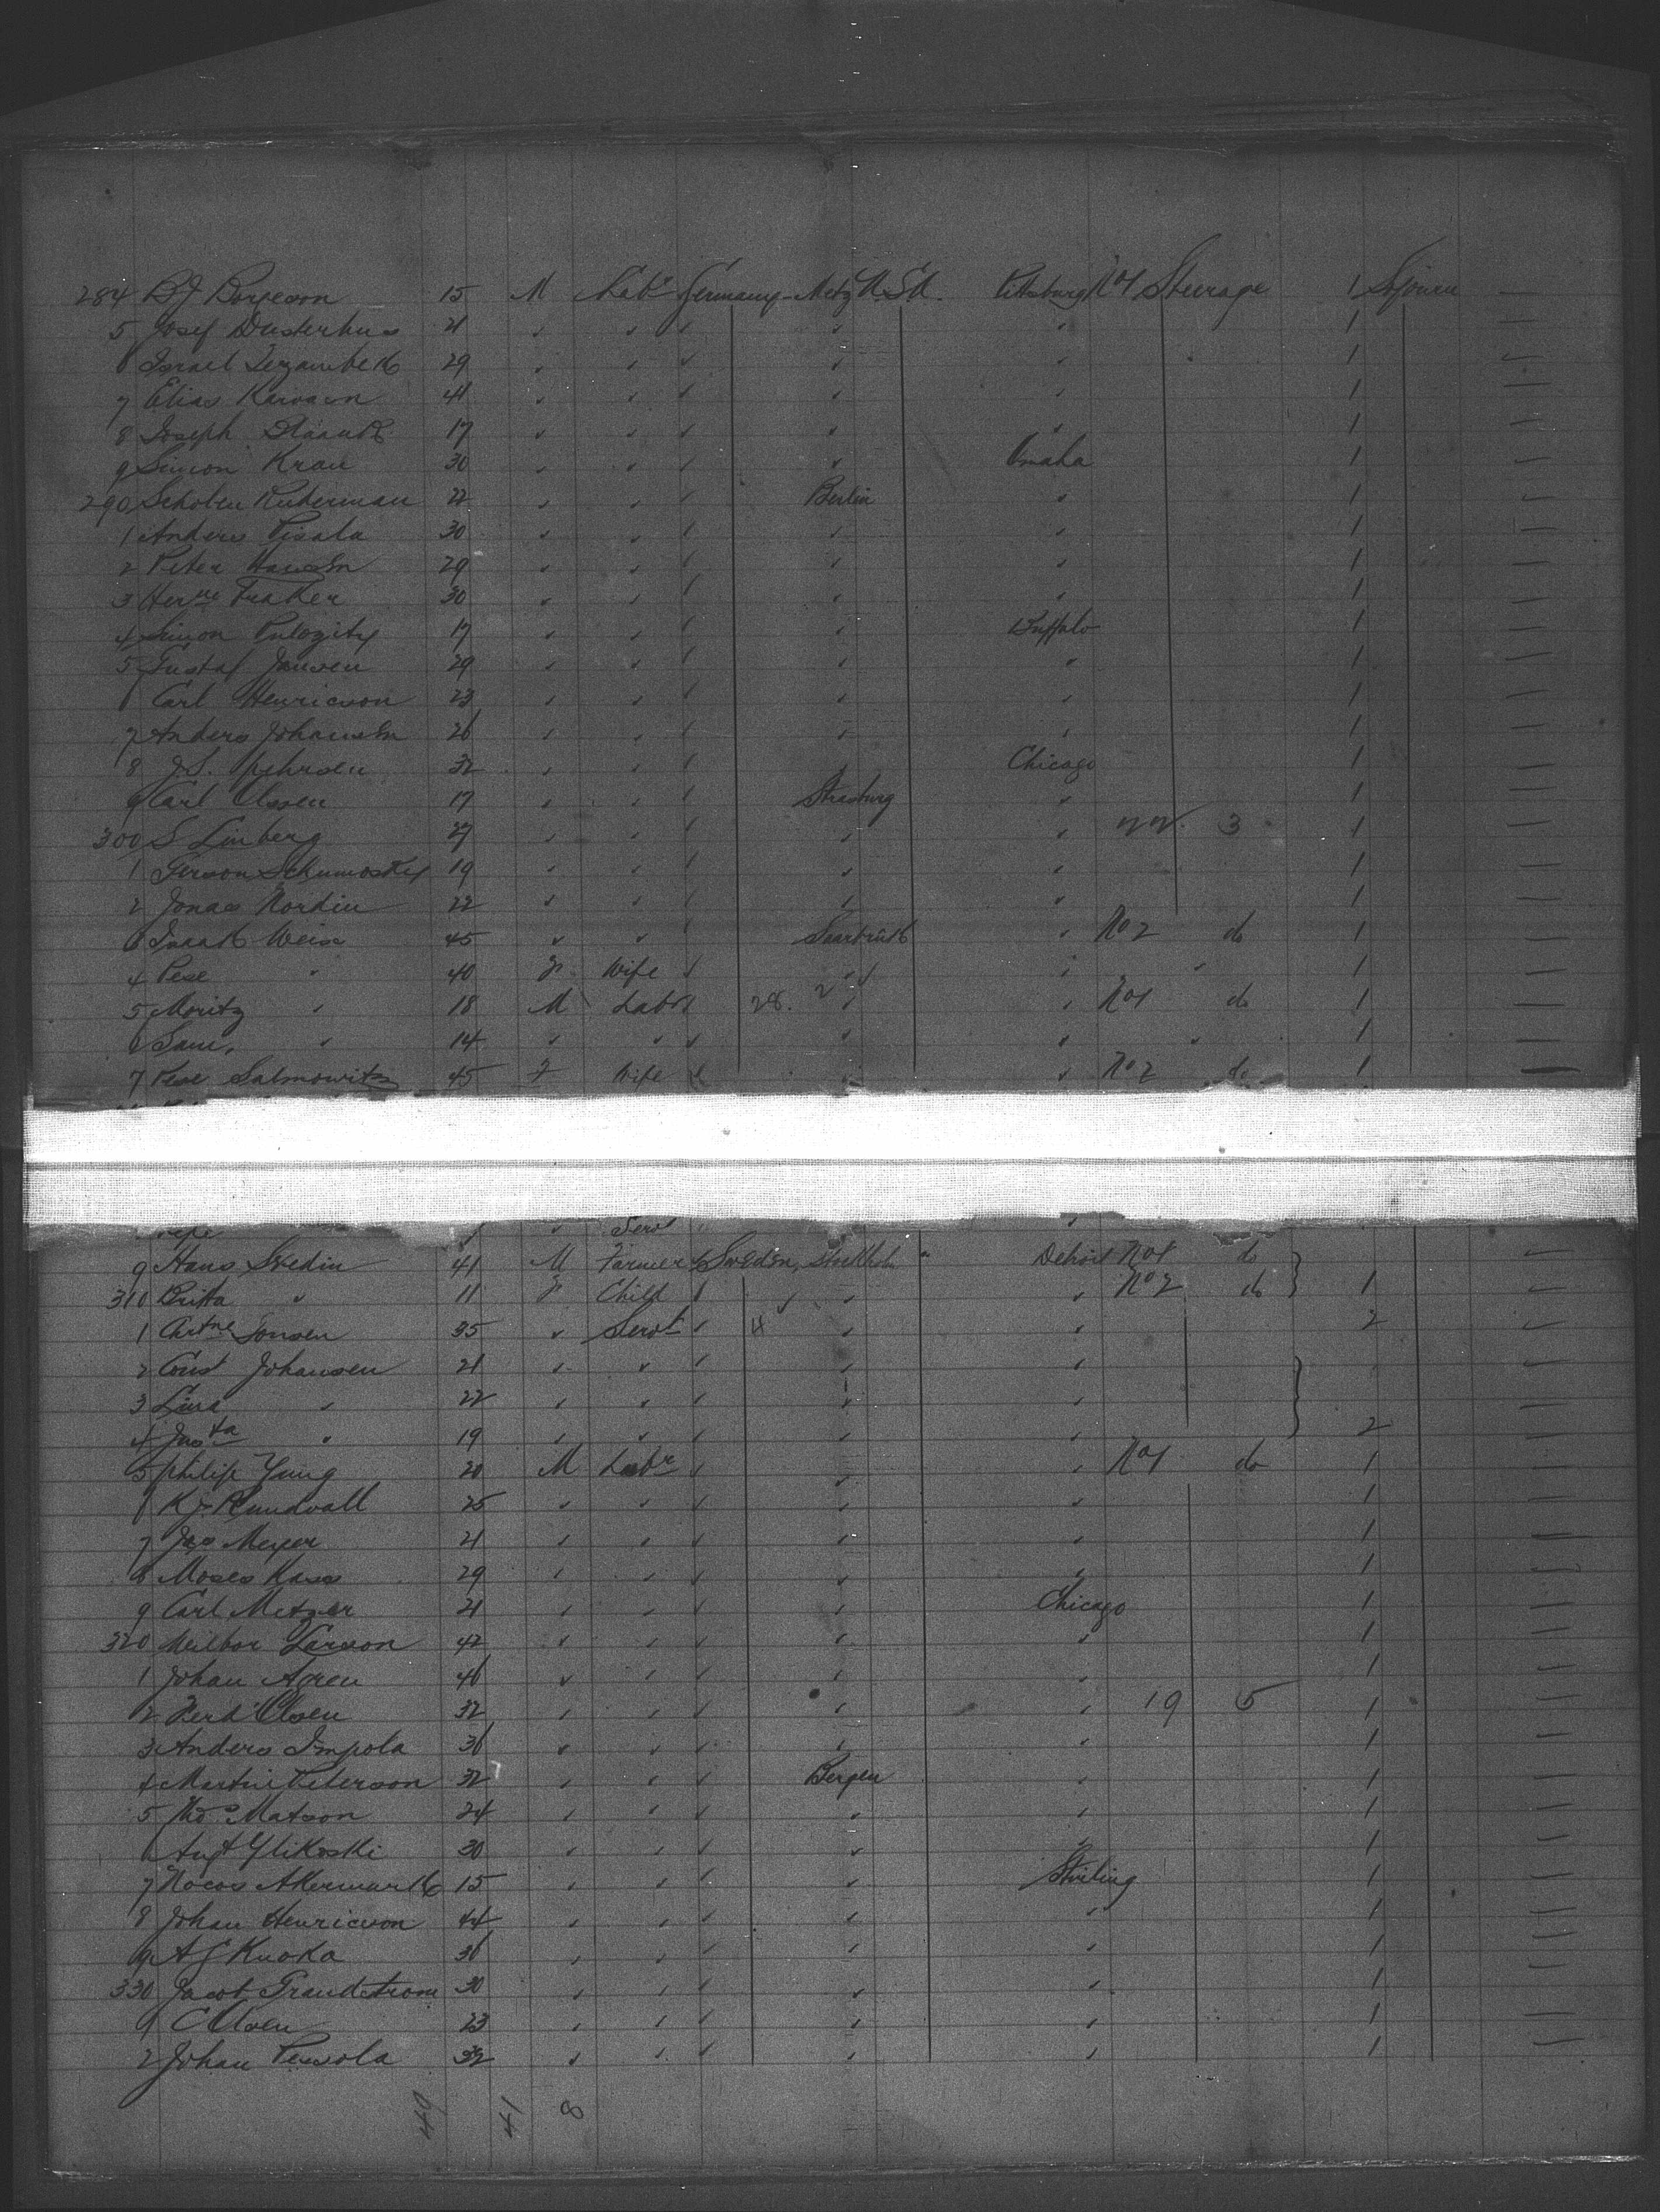 284 B J Borjeson 15 M Labr Germany Metz U.S.A. Pittsburg No 1 Steerage 1 Sojourn —
5 Josef Dusterhus 21 " " " " " 1 —
6 Israel 29 " " " " " 1 —
7 Elias 41 " " " " " 1 —
8 Joseph 17 " " " " " 1 —
9 Simon Krau 30 " " " " Omaha 1 —
290 Ruderman 22 " " " Berlin " 1 —
1 Anders Pisala 30 " " " " " 1 —
2 Peter Hansen 29 " " " " " 1 —
3 30 " " " " " 1 —
4 Simon 17 " " " " Buffalo 1 —
5 Gustaf Jansen 29 " " " " " 1 —
6 Carl Henricson 23 " " " " " 1 —
7 Anders Johansen 26 " " " " " 1 —
8 J.S. 32 " " " " Chicago 1 —
9 Carl Olssen 17 " " " Strasburg " 1 —
300 S Linberg 27 " " " " " 22 3 1
1 Gerson Schumosky 19 " " " " " 1 —
2 Jonas Nordin 22 " " " " " 1 —
3 Isaak Weiss 45 " " " Saarbrück " No 2 do 1 —
4 Pese " 40 F Wife " " " " 1 —
5 Moritz " 18 M Labr 28. 2 " " No 1 do 1 —
6 Sam. " 14 " " " " " " 1 —
7 Pese Salmowitz 45 F Wife " " " No 2 do 1 —
" Servt "
9 Hans Svedin 41 M Farmer Sweden, Stockholm " Detroit No 1 do —
310 Britta " 11 F Child " " " No 2 do 1 —
1 Chrtne Jonsen 35 " Servt " 4 " " 2 —
2 Johansen 21 " " " " " —
3 Lina " 22 " " " " " —
4 Justa " 19 " " " " " 2 —
5 Philip Yung 20 M Labr " " " No 1 do 1 —
6 K J Rundvall 25 " " " " " 1 —
7 Jas Meyer 21 " " " " " 1 —
8 Moses Kass 29 " " " " " 1 —
9 Carl Metzer 21 " " " " Chicago 1 —
320 Larson 42 " " " " " 1 —
1 Johan Agren 46 " " " " " 1 —
2 Olsen 32 " " " " " 19 5 1 —
3 Anders Impola 36 " " " " " 1 —
4 Martin Peterson 32 " " " Bergen " 1 —
5 Matson 24 " " " " " 1 —
6 Augt Ylikoski 30 " " " " " 1 —
7 15 " " " " Stirling 1 —
8 Johan Henricson 44 " " " " " 1 —
9 A J Kuoka 36 " " " " " 1 —
330 Jacob 30 " " " " " 1 —
1 C Olsen 23 " " " " " 1 —
2 Johan 32 " " " " " 1 —
49 41 8